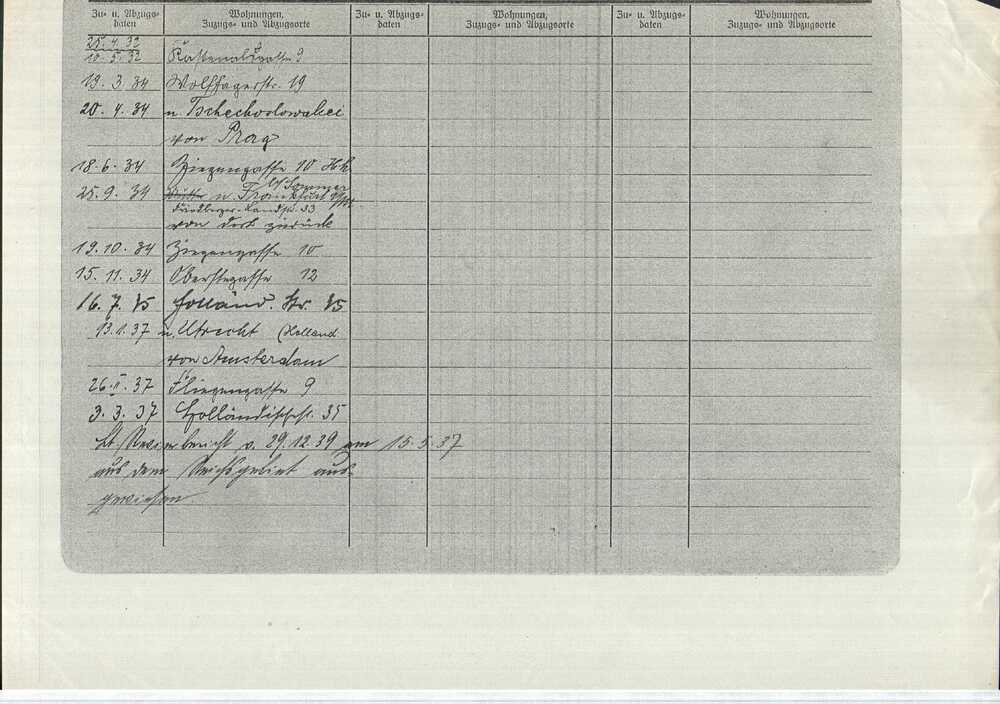 Zu- u. Abzugs- Wohnungen, Zu- u. Abzugs- Wohnungen, Zu- u. Abzugs- Wohnungen,
daten Zuzugs- und Abzugsorte daten Zuzugs- und Abzugsorte daten Zuzugs- und Abzugsorte
25.4.32
10.5.32 9
19.3.34 Wolfhagerstr. 19
20.4.34 n. Tschechoslowakei
von Prag
18.6.34 Ziegengasse 10
25.9.34 n. Frankfurt
Friedberger-Landstr. 33
von dort zurück
19.10.34 Ziegengasse 10
15.11.34 Oberstegasse 12
16.7.35 Holländ. Str. 35
13.1.37 n. Utrecht (Holland
von Amsterdam
26.II.37 Fliegengasse 9
3.3.37 Holländischestr. 35
Lt. Revierbericht v. 29.12.39 am 15.5.37
aus dem Reichsgebiet aus-
gewiesen